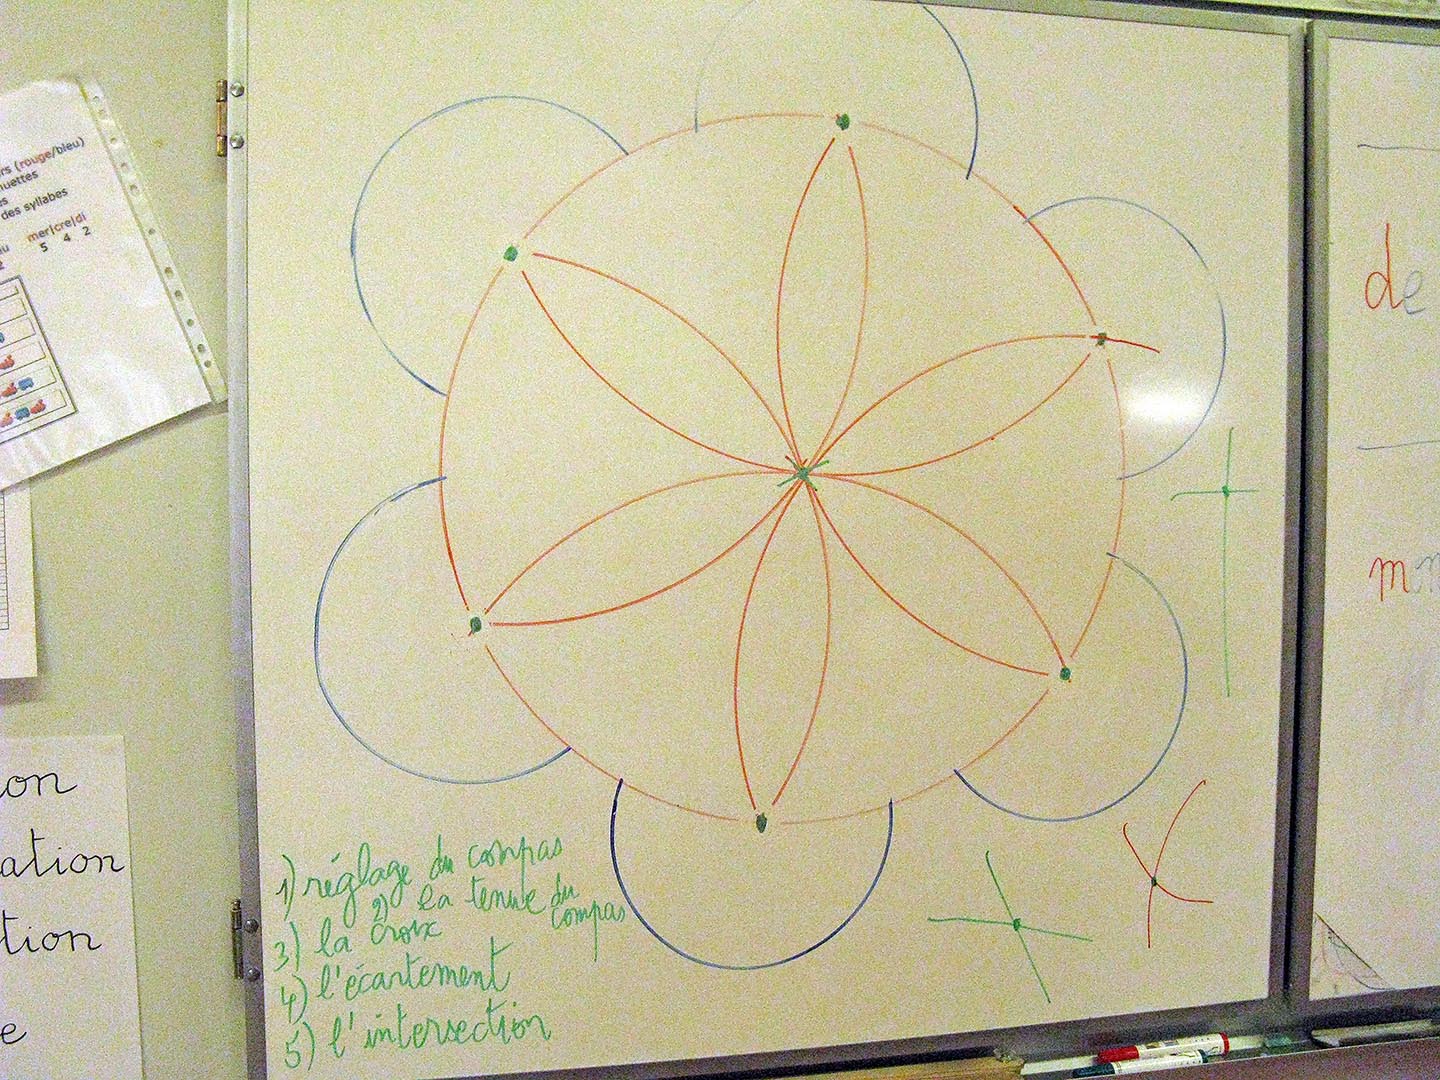 rs (rouge/bleu)
des syllabes
mer|cre|di
5 4 2
on
ation
tion
e
1) réglage du compas
2) la tenue du compas
3) la croix
4) l'écartement
5) l'intersection
de
m